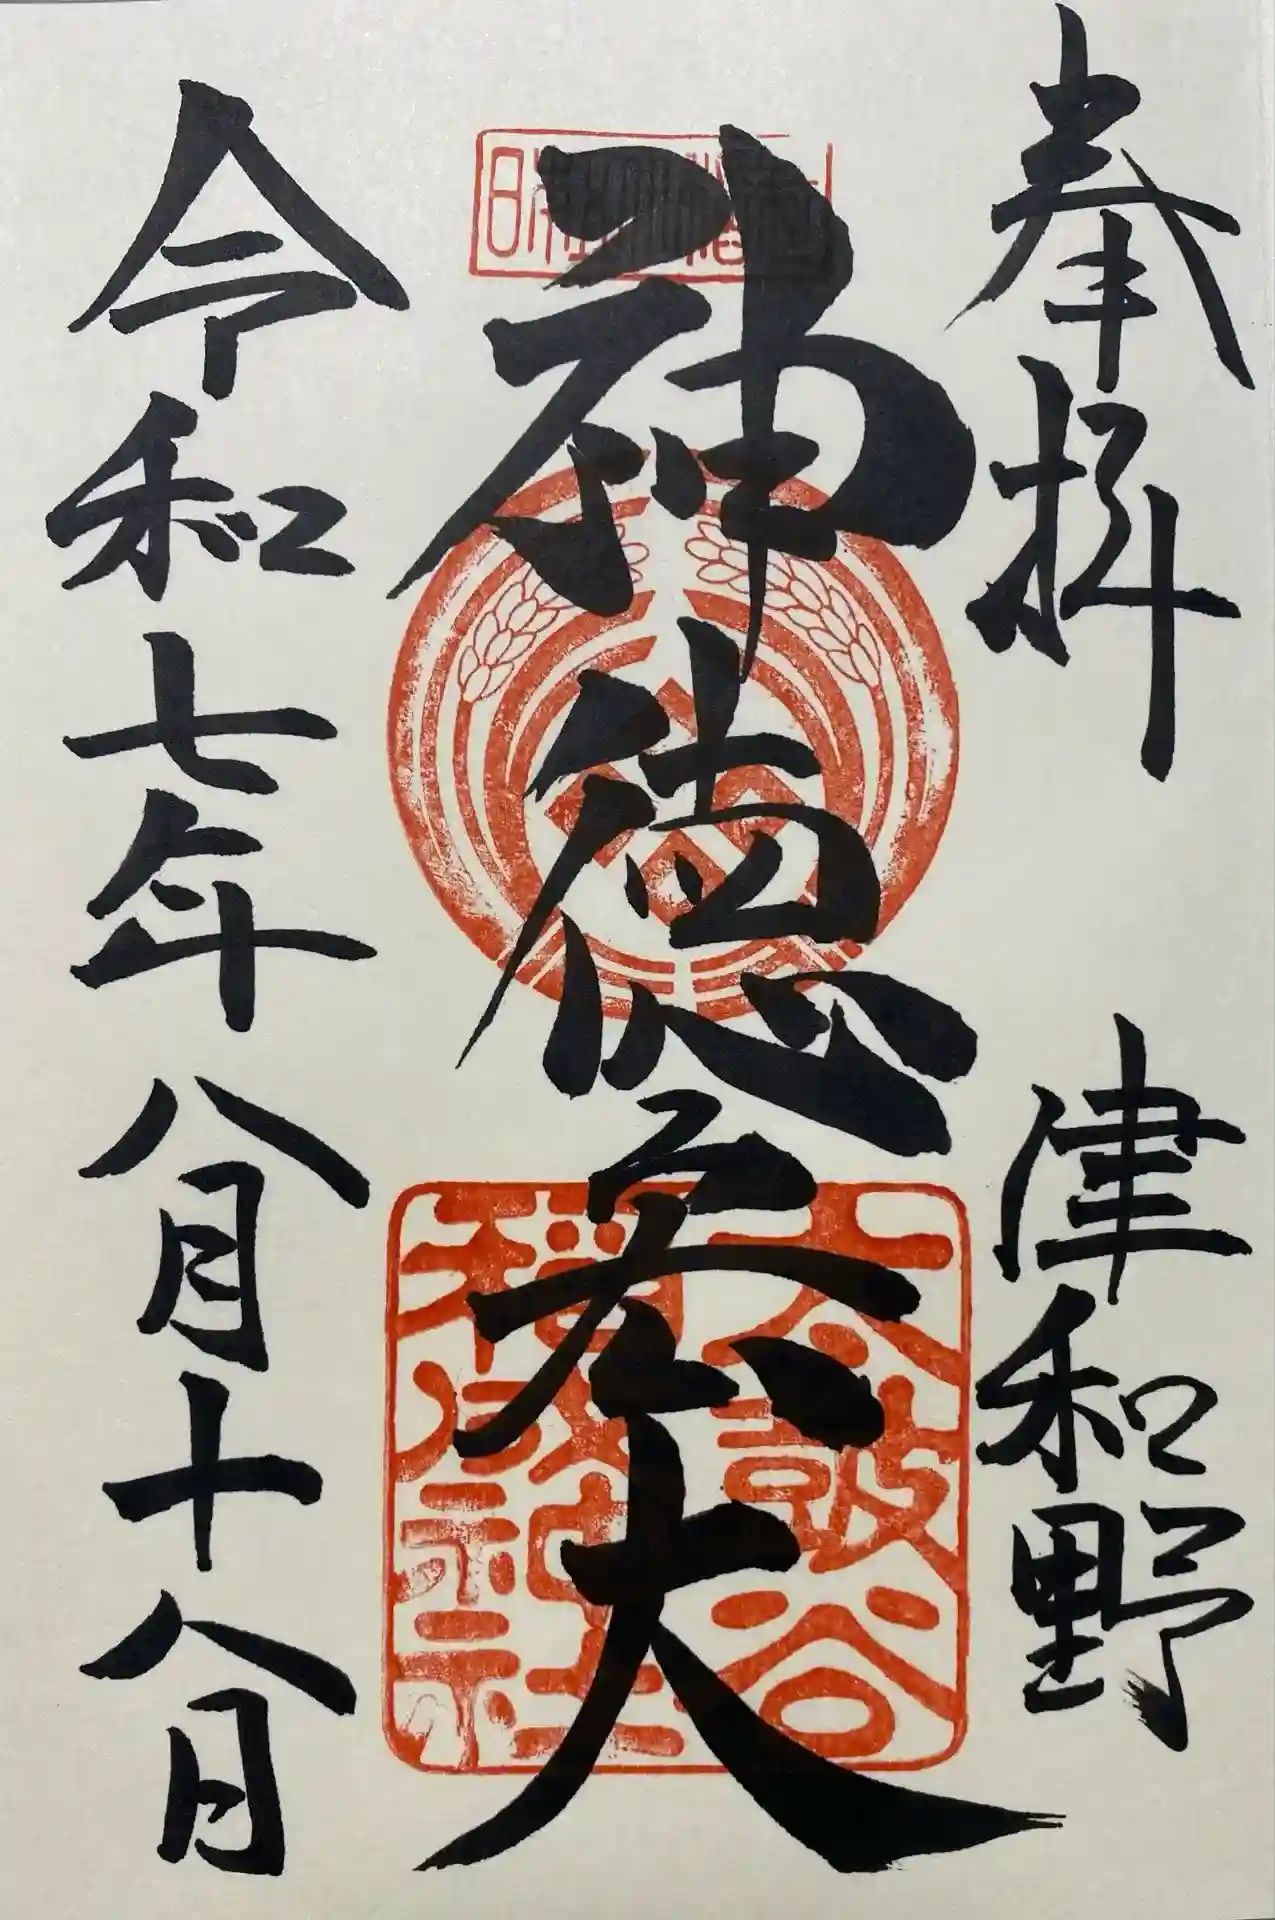 奉拝　津和野
神徳宏大
太皷谷
稲成神社
令和七年八月十八日